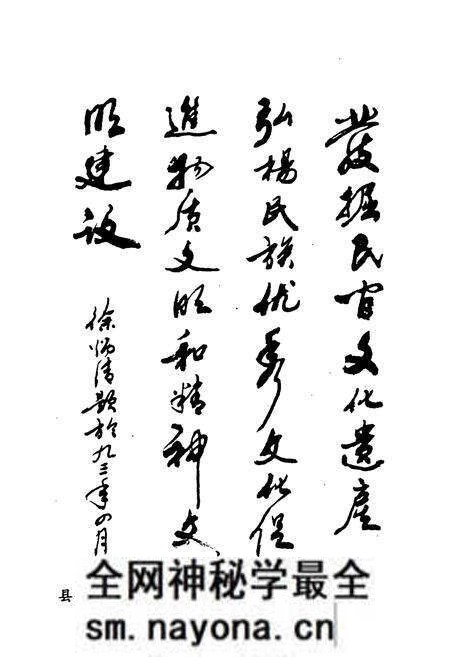 發掘民间文化遗產
弘楊民族优秀文化促
進物质文明和精神文
明建设
徐炳清题於九三年四月
县
全网神秘学最全
sm.nayona.cn